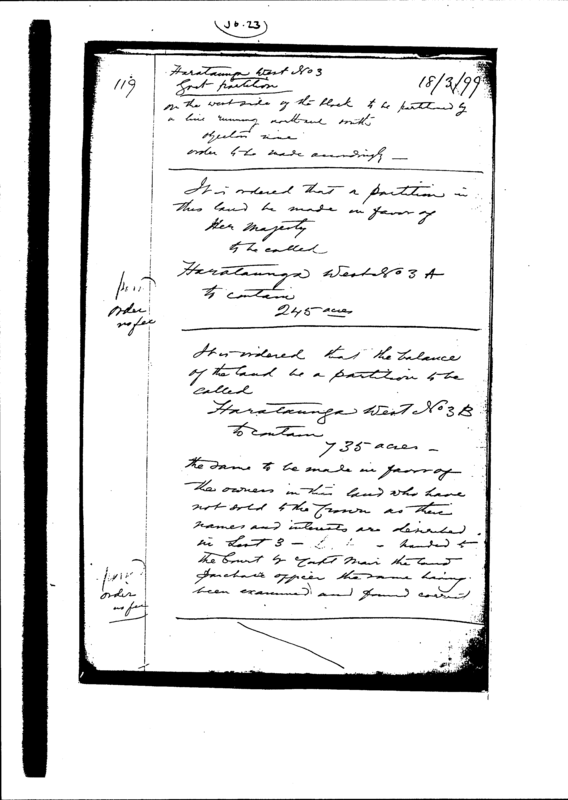 J6.23
119
Harataunga West No 3
Govt partition
18/3/99
on the west side of the block to be partitioned by
a line running north and south
order to be made accordingly —
It is ordered that a partition in
this land be made in favor of
Her Majesty
to be called
Harataunga West No 3 A
to contain
245 acres
order
no fee
It is ordered that the balance
of the land be a partition to be
called
Harataunga West No 3 B
to contain
735 acres —
the same to be made in favor of
the owners in this land who have
not sold to the Crown as their
names and interests are
in List 3 — handed to
the Court by Capt Mair the land
purchase officer the same being
been examined and found correct
order
no fee